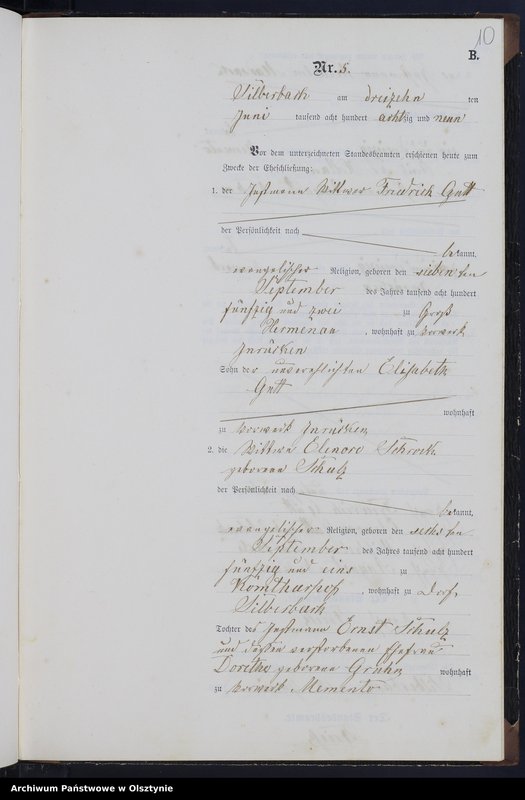 10
B.
Nr. 5.
Silberbach am dreizehn ten
Juni tausend acht hundert achtzig und neun
Vor dem unterzeichneten Standesbeamten erschienen heute zum
Zwecke der Eheschließung:
1. der Instmann Wittwer Friedrich Gutt
der Persönlichkeit nach
bekannt,
evangelischer Religion, geboren den siebenten
September des Jahres tausend acht hundert
fünfzig und zwei zu Groß
Hermenau, wohnhaft zu Vorwerk
Inrücken
Sohn der unverehlichten Elisabeth
Gutt
wohnhaft
zu Vorwerk Inrücken
2. die Wittwe Elenore Schrock
geborene Schulz
der Persönlichkeit nach
bekannt,
evangelischer Religion, geboren den sechsten
September des Jahres tausend acht hundert
fünfzig und eins zu
, wohnhaft zu Dorf
Silberbach
Tochter des Instmann Ernst Schulz
und dessen verstorbenen Ehefrau
Dorethe geborene Gruhn wohnhaft
zu Vorwerk Memento
Archiwum Państwowe w Olsztynie